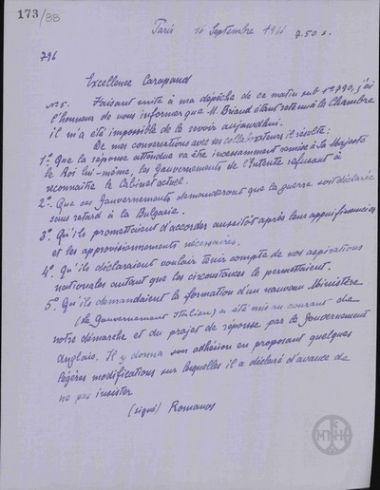 173/88
Paris 16 Septembre 1916 7.50 s.
796
Excellence Carapanos
No 5. Faisant suite à ma dépêche de ce matin sub No 790, j'ai
l'honneur de vous informer que M. Briand étant retenu à la Chambre
il m'a été impossible de le revoir aujourd'hui.
De mes conversations avec ses collaborateurs il résulte:
1° Que la réponse attendue va être incessamment remise à Sa Majesté
le Roi lui-même, les Gouvernements de l'Entente refusant à
reconnaître le Cabinet actuel.
2° Que ces Gouvernements demanderont que la guerre soit déclarée
sans retard à la Bulgarie.
3° Qu'ils promettraient d'accorder aussitôt après leur appui financier
et les approvisionnements nécessaires.
4° Qu'ils déclaraient vouloir tenir compte de nos aspirations
nationales autant que les circonstances le permettraient.
5° Qu'ils demandaient la formation d'un nouveau Ministère
(Le Gouvernement Italien) a été mis au courant de
notre démarche et du projet de réponse par le Gouvernement
Anglais. Il y donna son adhésion en proposant quelques
légères modifications sur lesquelles il a déclaré d'avance de
ne pas insister
(signé) Romanos